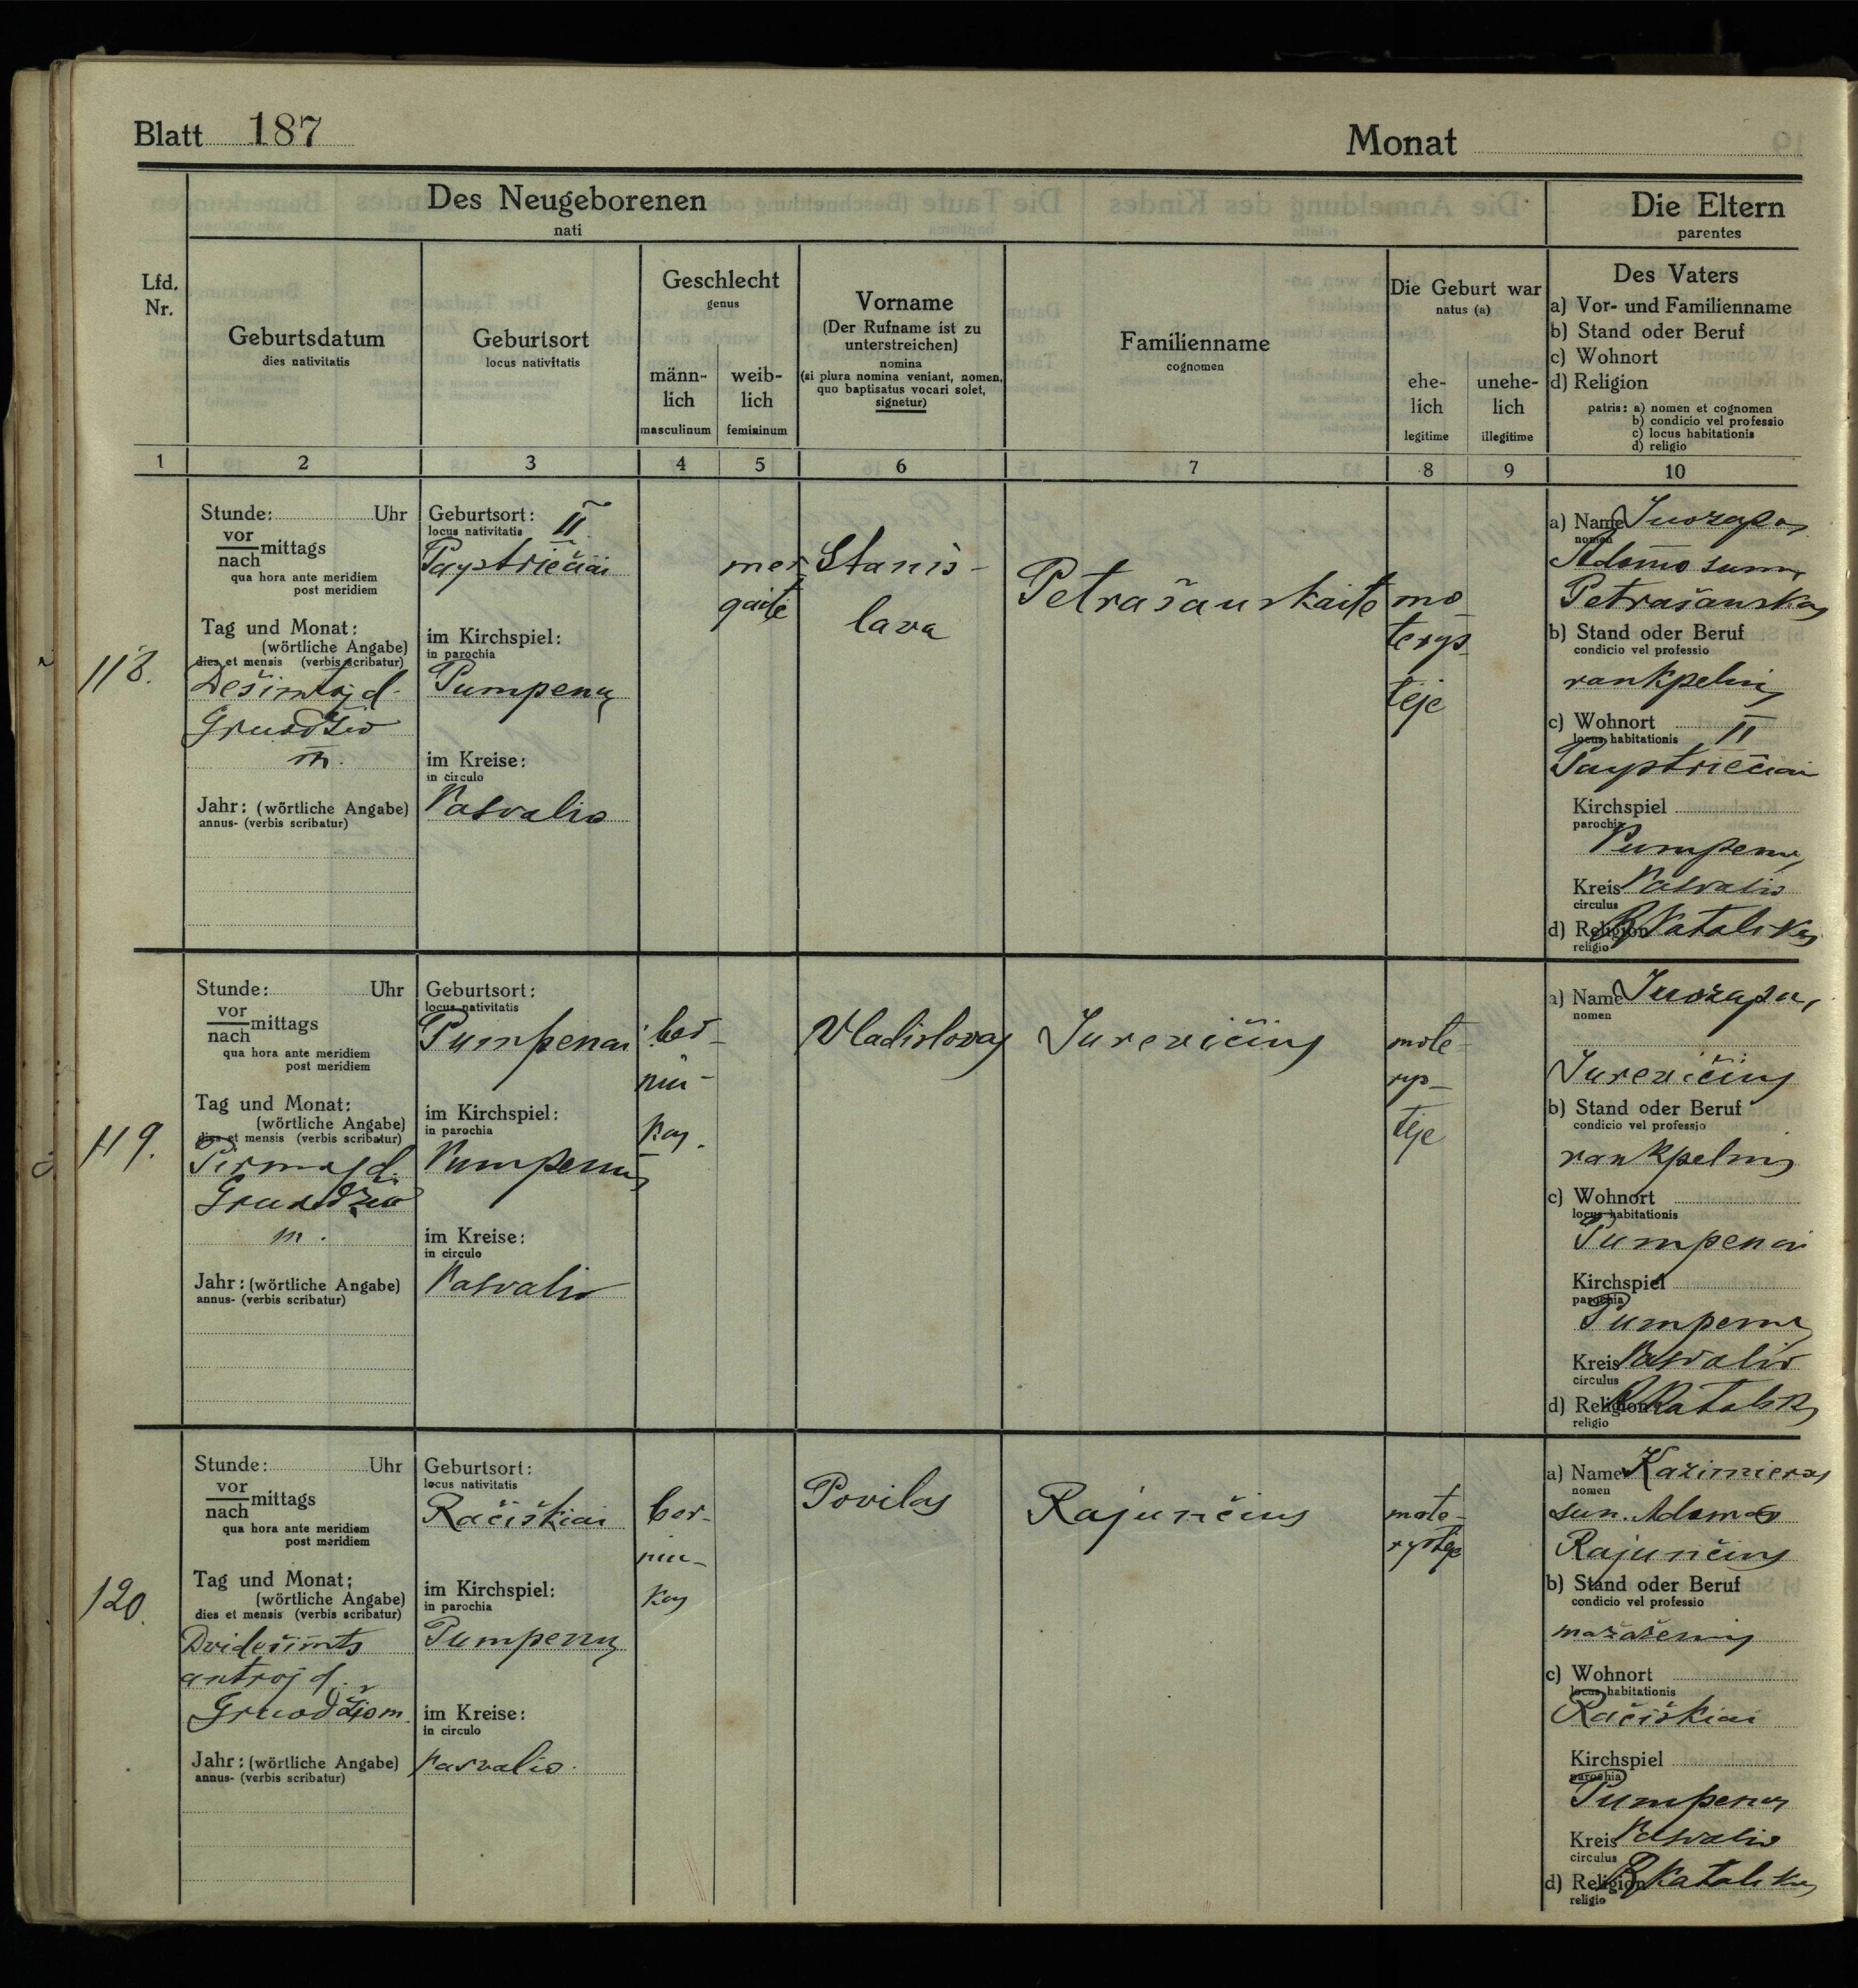 Blatt 187
Monat
Des Neugeborenen
nati
Die Eltern
parentes
Lfd.
Nr.
Geburtsdatum
dies nativitatis
Geburtsort
locus nativitatis
Geschlecht
genus
männ-
lich
masculinum
weib-
lich
femininum
Vorname
(Der Rufname ist zu
unterstreichen)
nomina
(si plura nomina veniant, nomen,
quo baptisatus vocari solet,
signetur)
Familienname
cognomen
Die Geburt war
natus (a)
ehe-
lich
legitime
unehe-
lich
illegitime
Des Vaters
a) Vor- und Familienname
b) Stand oder Beruf
c) Wohnort
d) Religion
patris: a) nomen et cognomen
b) condicio vel professio
c) locus habitationis
d) religio
1 2 3 4 5 6 7 8 9 10
118.
Stunde: Uhr
vor
nach
mittags
qua hora ante meridiem
post meridiem
Tag und Monat:
(wörtliche Angabe)
dies et mensis (verbis scribatur)
Dešimtoj d.
Gruodžio
m.
Jahr: (wörtliche Angabe)
annus- (verbis scribatur)
Geburtsort: II
locus nativitatis
Paystriečiai
im Kirchspiel:
in parochia
Pumpenų
im Kreise:
in circulo
Pasvalio
mer
gaitė
Stanis-
lava
Petrašauskaitė
mo
terys
tėje
a) Name Juozapas
nomen
Adomo sunus
Petrašauskas
b) Stand oder Beruf
condicio vel professio
rankpelnis
c) Wohnort II
locus habitationis
Paystriečiai
Kirchspiel
parochia
Pumpenų
Kreis Pasvalio
circulus
d) Religion R Katalikas
religio
119.
Stunde: Uhr
vor
nach
mittags
qua hora ante meridiem
post meridiem
Tag und Monat:
(wörtliche Angabe)
dies et mensis (verbis scribatur)
Pirmoj d.
Gruodžio
m.
Jahr: (wörtliche Angabe)
annus- (verbis scribatur)
Geburtsort:
locus nativitatis
Pumpenai
im Kirchspiel:
in parochia
Pumpenų
im Kreise:
in circulo
Pasvalio
ber-
niu-
kas.
Vladislovas
Jurevičius
mote-
rys-
tėje
a) Name Juozapas
nomen
Jurevičius
b) Stand oder Beruf
condicio vel professio
rankpelnis
c) Wohnort
locus habitationis
Pumpenai
Kirchspiel
parochia
Pumpenų
Kreis Pasvalio
circulus
d) Religion R Katalik
religio
120.
Stunde: Uhr
vor
nach
mittags
qua hora ante meridiem
post meridiem
Tag und Monat:
(wörtliche Angabe)
dies et mensis (verbis scribatur)
Dvidešimts
antroj d.
Gruodžio m.
Jahr: (wörtliche Angabe)
annus- (verbis scribatur)
Geburtsort:
locus nativitatis
Račiškiai
im Kirchspiel:
in parochia
Pumpenų
im Kreise:
in circulo
Pasvalio.
ber-
niu-
kas
Povilas
Rajunčius
mote-
rystėje
a) Name Kazimieras
nomen
sun. Adomo
Rajunčius
b) Stand oder Beruf
condicio vel professio
mažažemis
c) Wohnort
locus habitationis
Račiškiai
Kirchspiel
parochia
Pumpenų
Kreis Pasvalio
circulus
d) Religion R Katalikas
religio